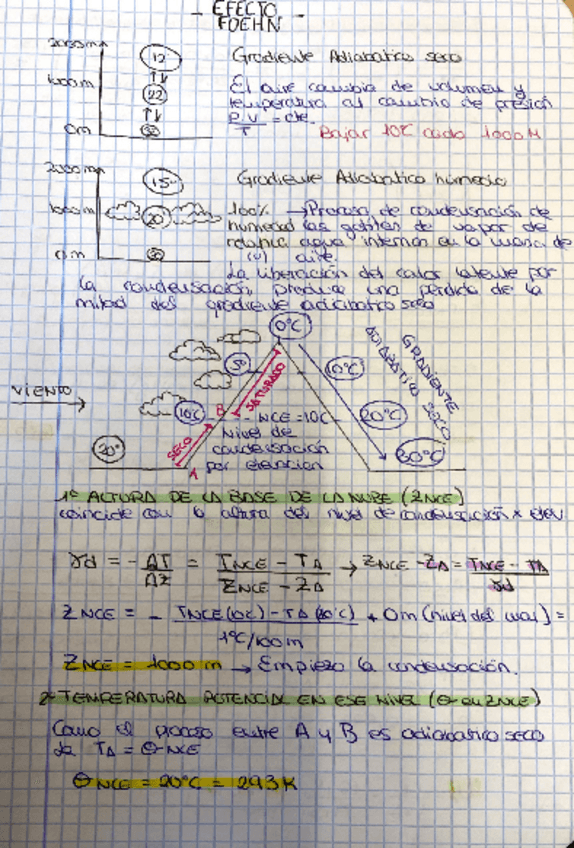 - EFECTO
FOEHN -
2000m
1000m
0m
12
22
Gradiente Adiabático seco
El aire cambia de volumen y
temperatura al cambio de presión
P.V = cte.
T
Bajar 10°C cada 1000M
2000m
1000m
0m
15°
20°
Gradiente Adiabático húmedo
100% → Proceso de condensación de
humedad las gotitas de vapor de
relativa agua internas en la masa de
aire.
La liberación del calor latente por
la condensación, produce una pérdida de la
mitad del gradiente adiabático seco
VIENTO
20°
10°C
5°
0°C
10°C
20°C
30°C
SECO
SATURADO
A
B
NCE = 10C
Nivel de
condensación
por elevación
GRADIENTE
ADIABÁTICO SECO
1º ALTURA DE LA BASE DE LA NUBE (ZNCE)
coincide con la altura del nivel de condensación x elev
γd = - ΔT / ΔZ = TNCE - TA / ZNCE - ZA → ZNCE - ZA = TNCE - TA / γd
ZNCE = - TNCE (10°C) - TA (20°C) / 1°C/100m + 0m (nivel del mar) =
ZNCE = 1000 m → Empieza la condensación.
2º TEMPERATURA POTENCIAL EN ESE NIVEL (θ en ZNCE)
Como el proceso entre A y B es adiabático seco
la TA = θNCE
θNCE = 20°C = 293K